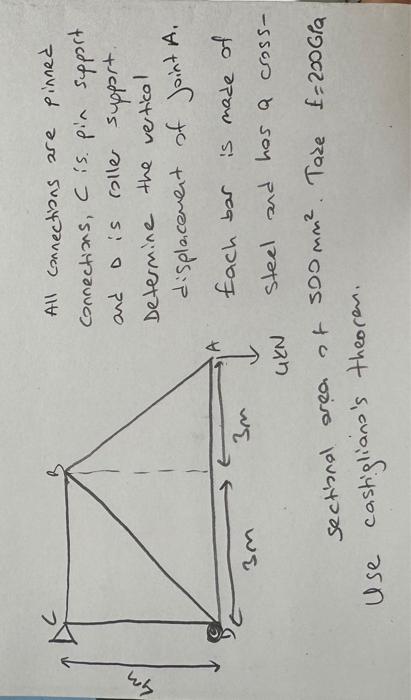 All connections are pinned
connections, C is pin support
and D is roller support.
Determine the vertical
displacement of joint A.
Each bar is made of
steel and has a cross-
sectional area of 500 mm². Take E=200GPa
Use castigliano's theorem.
C
B
A
D
4kN
3m
3m